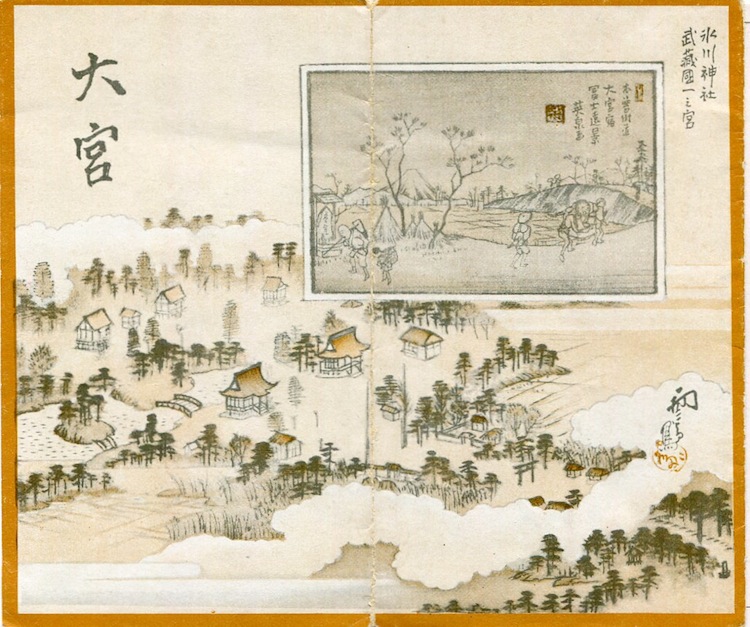 氷川神社
武藏國一之宮
木曾街道
大宮宿
冨士遠景
英泉画
大宮